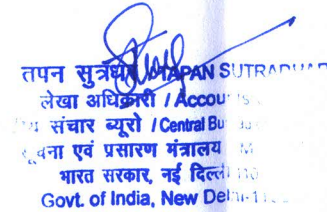 तपन सुत्रधार / TAPAN SUTRADHAR
लेखा अधिकारी / Accounts
संचार ब्यूरो / Central Bureau
सूचना एवं प्रसारण मंत्रालय / M
भारत सरकार, नई दिल्ली-110
Govt. of India, New Delhi-11